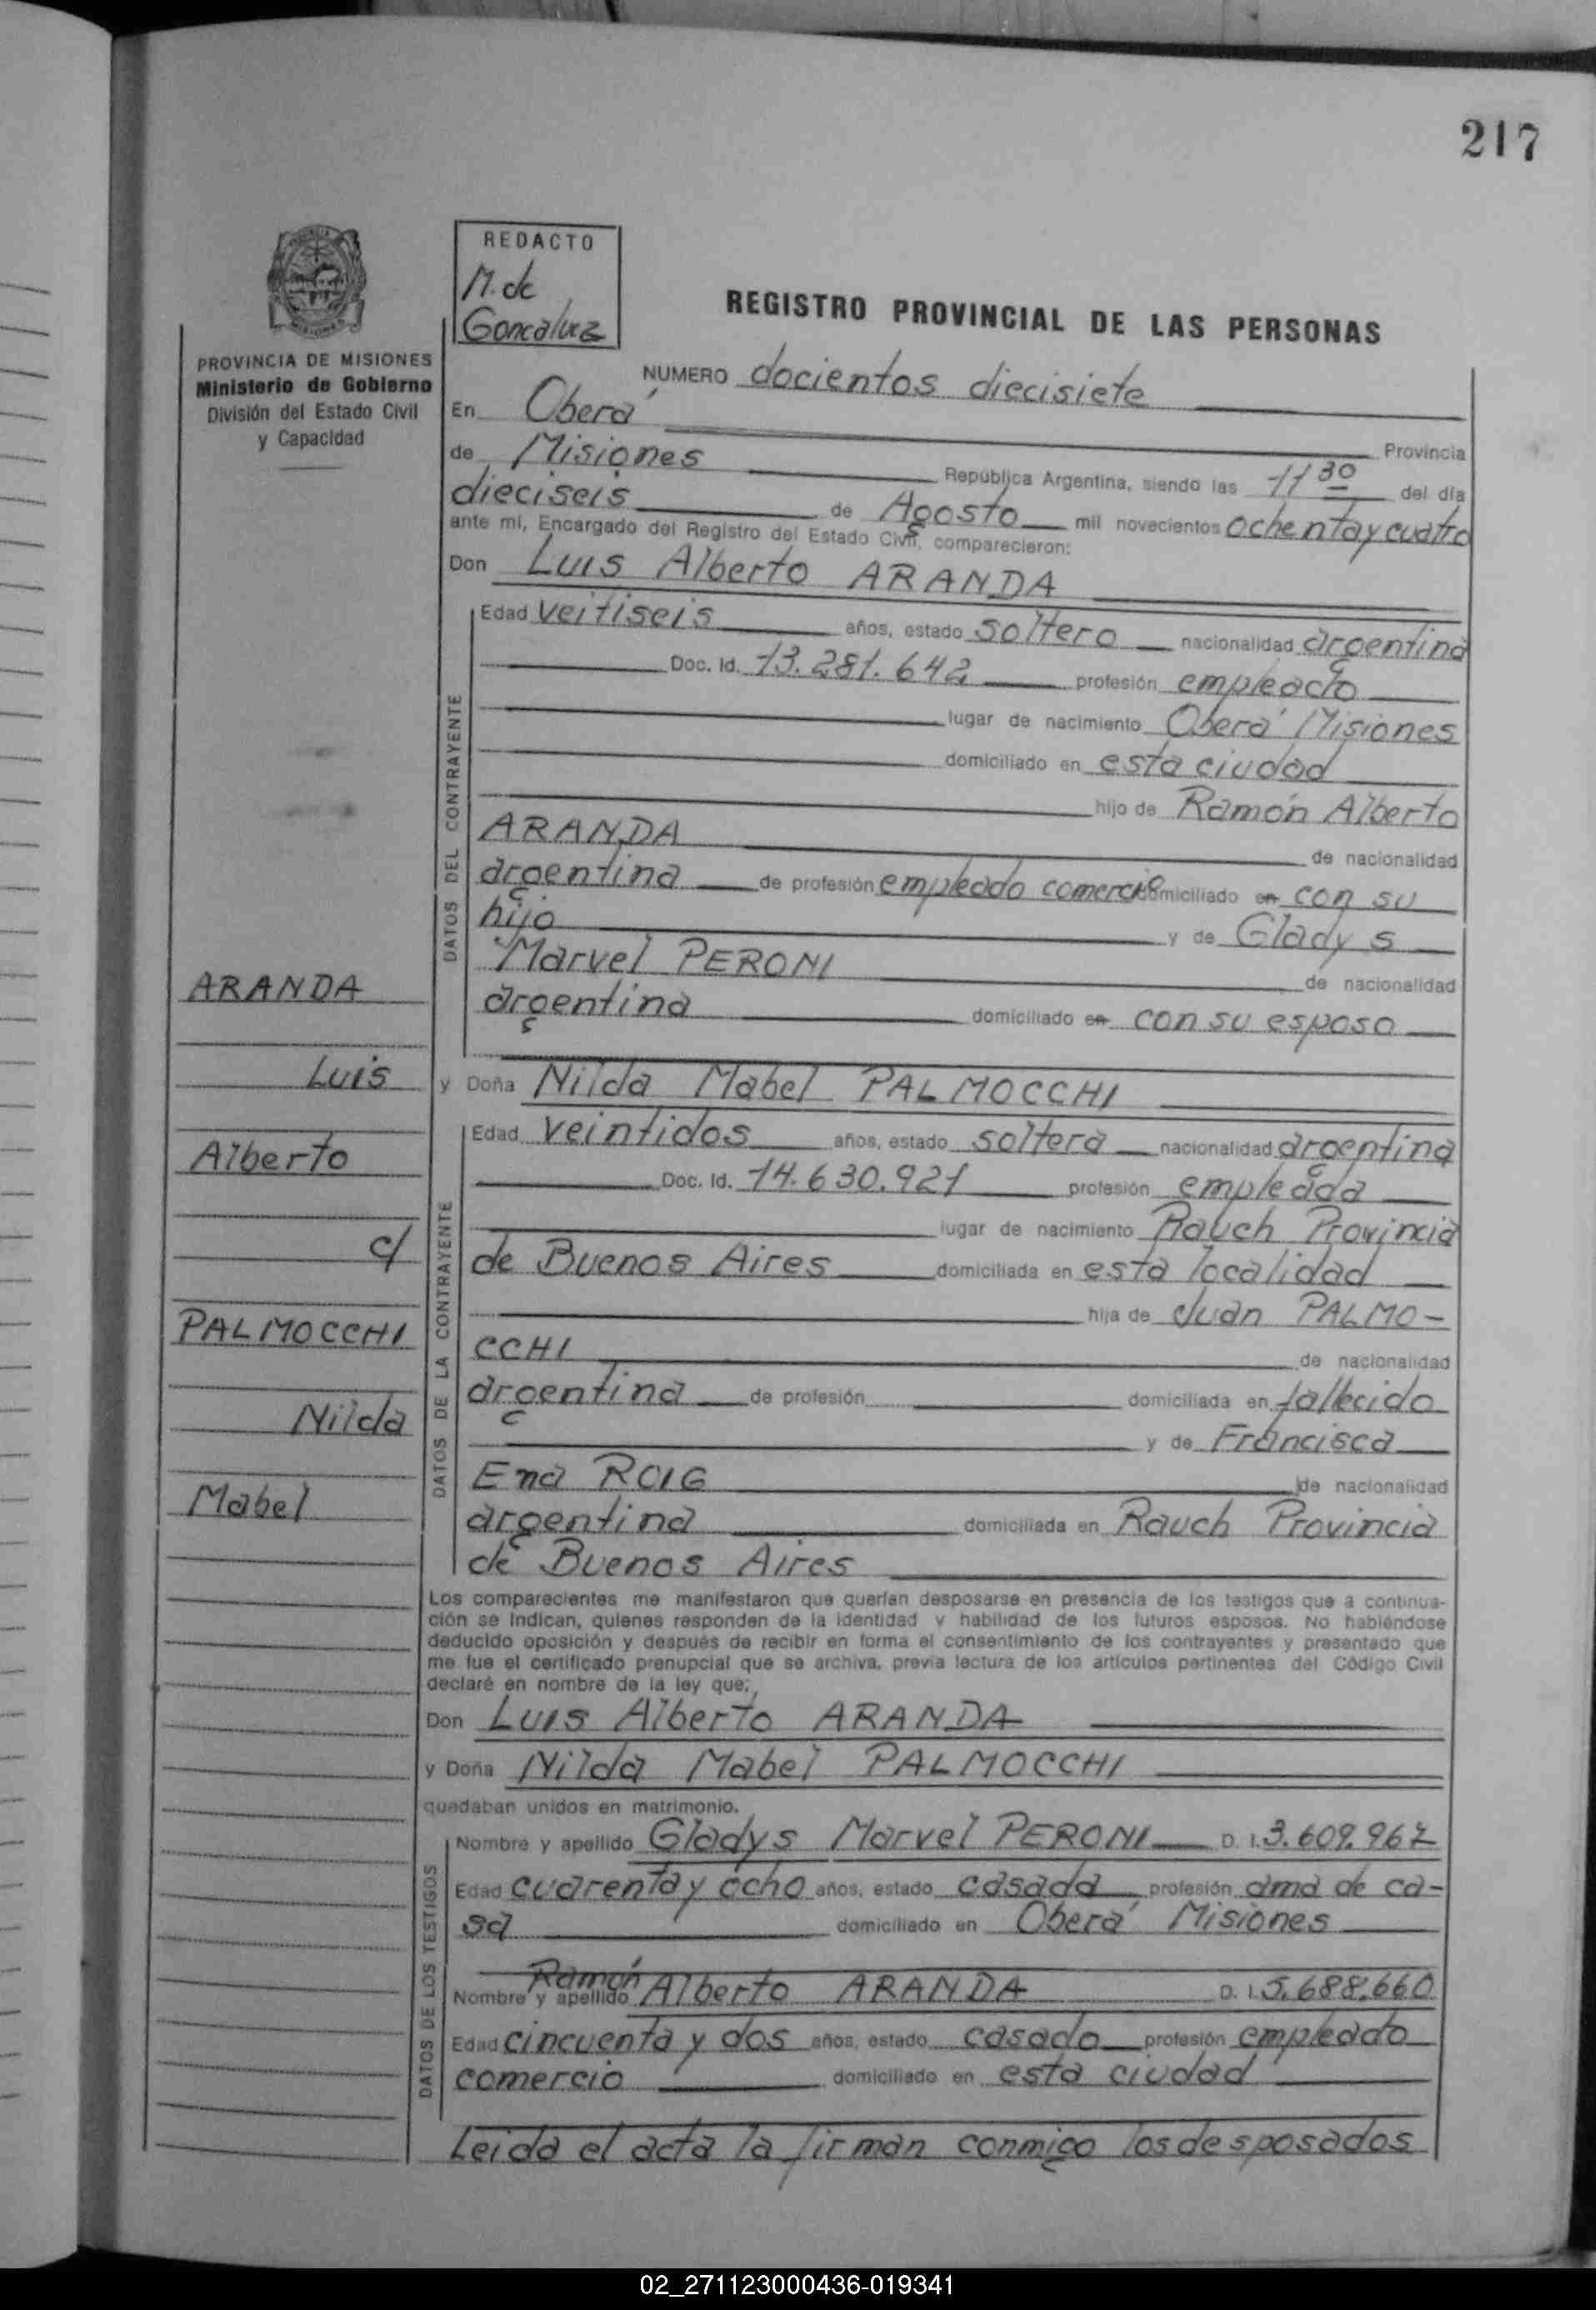 217
REDACTO
M. de
Goncalvez
REGISTRO PROVINCIAL DE LAS PERSONAS
PROVINCIA DE MISIONES
Ministerio de Gobierno
División del Estado Civil
y Capacidad
NUMERO docientos diecisiete
En Oberá Provincia
de Misiones República Argentina, siendo las 11 30 del día
dieciseis de Agosto mil novecientos ochenta y cuatro
ante mí, Encargado del Registro del Estado Civil, comparecieron:
Don Luis Alberto ARANDA
DATOS DEL CONTRAYENTE
Edad veitiseis años, estado soltero nacionalidad argentina
Doc. Id. 13.281.642 profesión empleado
lugar de nacimiento Oberá Misiones
domiciliado en esta ciudad
hijo de Ramón Alberto
ARANDA de nacionalidad
argentina de profesión empleado comercio domiciliado en con su
hijo y de Gladys
Marvel PERONI de nacionalidad
argentina domiciliado en con su esposo
y Doña Nilda Mabel PALMOCCHI
DATOS DE LA CONTRAYENTE
Edad veintidos años, estado soltera nacionalidad argentina
Doc. Id. 14.630.921 profesión empleada
lugar de nacimiento Rauch Provincia
de Buenos Aires domiciliada en esta localidad
hija de Juan PALMO-
CCHI de nacionalidad
argentina de profesión domiciliada en fallecido
y de Francisca
Ena ROIG de nacionalidad
argentina domiciliada en Rauch Provincia
de Buenos Aires
ARANDA
Luis
Alberto
c/
PALMOCCHI
Nilda
Mabel
Los comparecientes me manifestaron que querían desposarse en presencia de los testigos que a continua-
ción se indican, quienes responden de la identidad y habilidad de los futuros esposos. No habiéndose
deducido oposición y después de recibir en forma el consentimiento de los contrayentes y presentado que
me fue el certificado prenupcial que se archiva, previa lectura de los artículos pertinentes del Código Civil
declaré en nombre de la ley que:
Don Luis Alberto ARANDA
y Doña Nilda Mabel PALMOCCHI
quedaban unidos en matrimonio.
DATOS DE LOS TESTIGOS
Nombre y apellido Gladys Marvel PERONI D. I. 3.609.967
Edad cuarenta y ocho años, estado casada profesión ama de ca-
sa domiciliado en Oberá Misiones
Nombre y apellido Ramón Alberto ARANDA D. I. 5.688.660
Edad cincuenta y dos años, estado casado profesión empleado
comercio domiciliado en esta ciudad
Leida el acta la firman conmigo los desposados
02_271123000436-019341